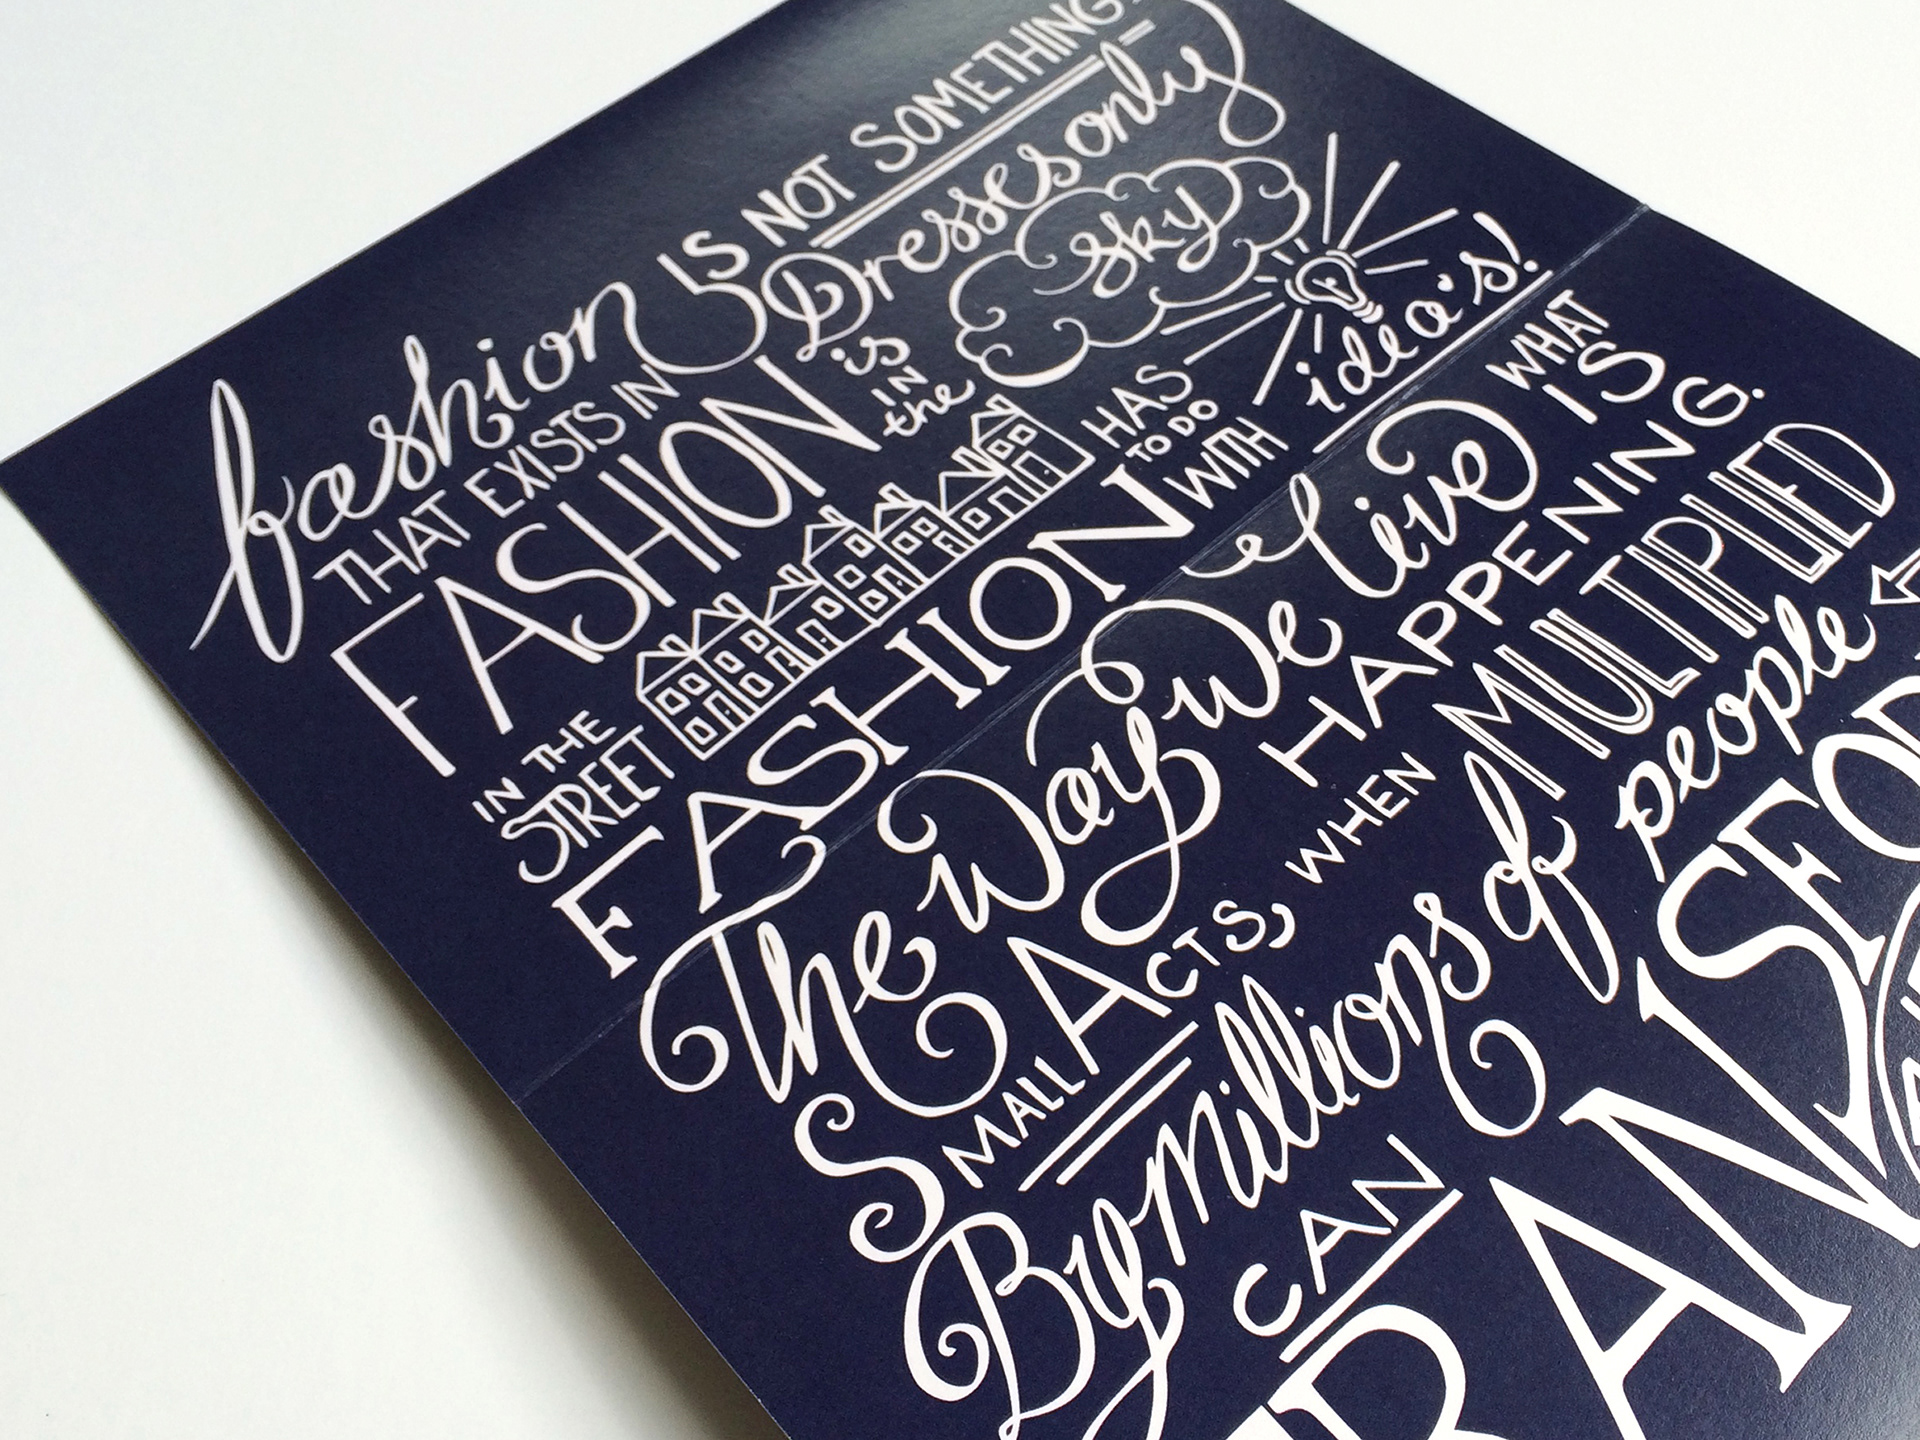 fashion IS NOT SOMETHING
THAT EXISTS IN Dresses only
FASHION is IN the sky
IN THE STREET
FASHION HAS TO DO WITH idea's!
The way we live WHAT IS HAPPENING.
SMALL ACTS, WHEN MULTIPLIED
By millions of people
CAN